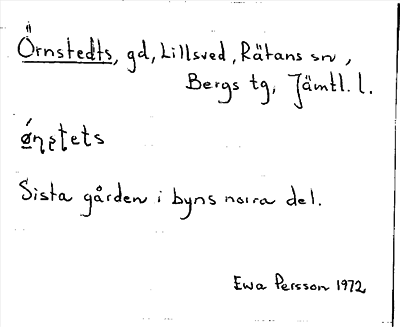 Örnstedts, gd, Lillsved, Rätans sn,
Bergs tg, Jämtl. l.
ǿṇʂtets
Sista gården i byns norra del.
Ewa Persson 1972